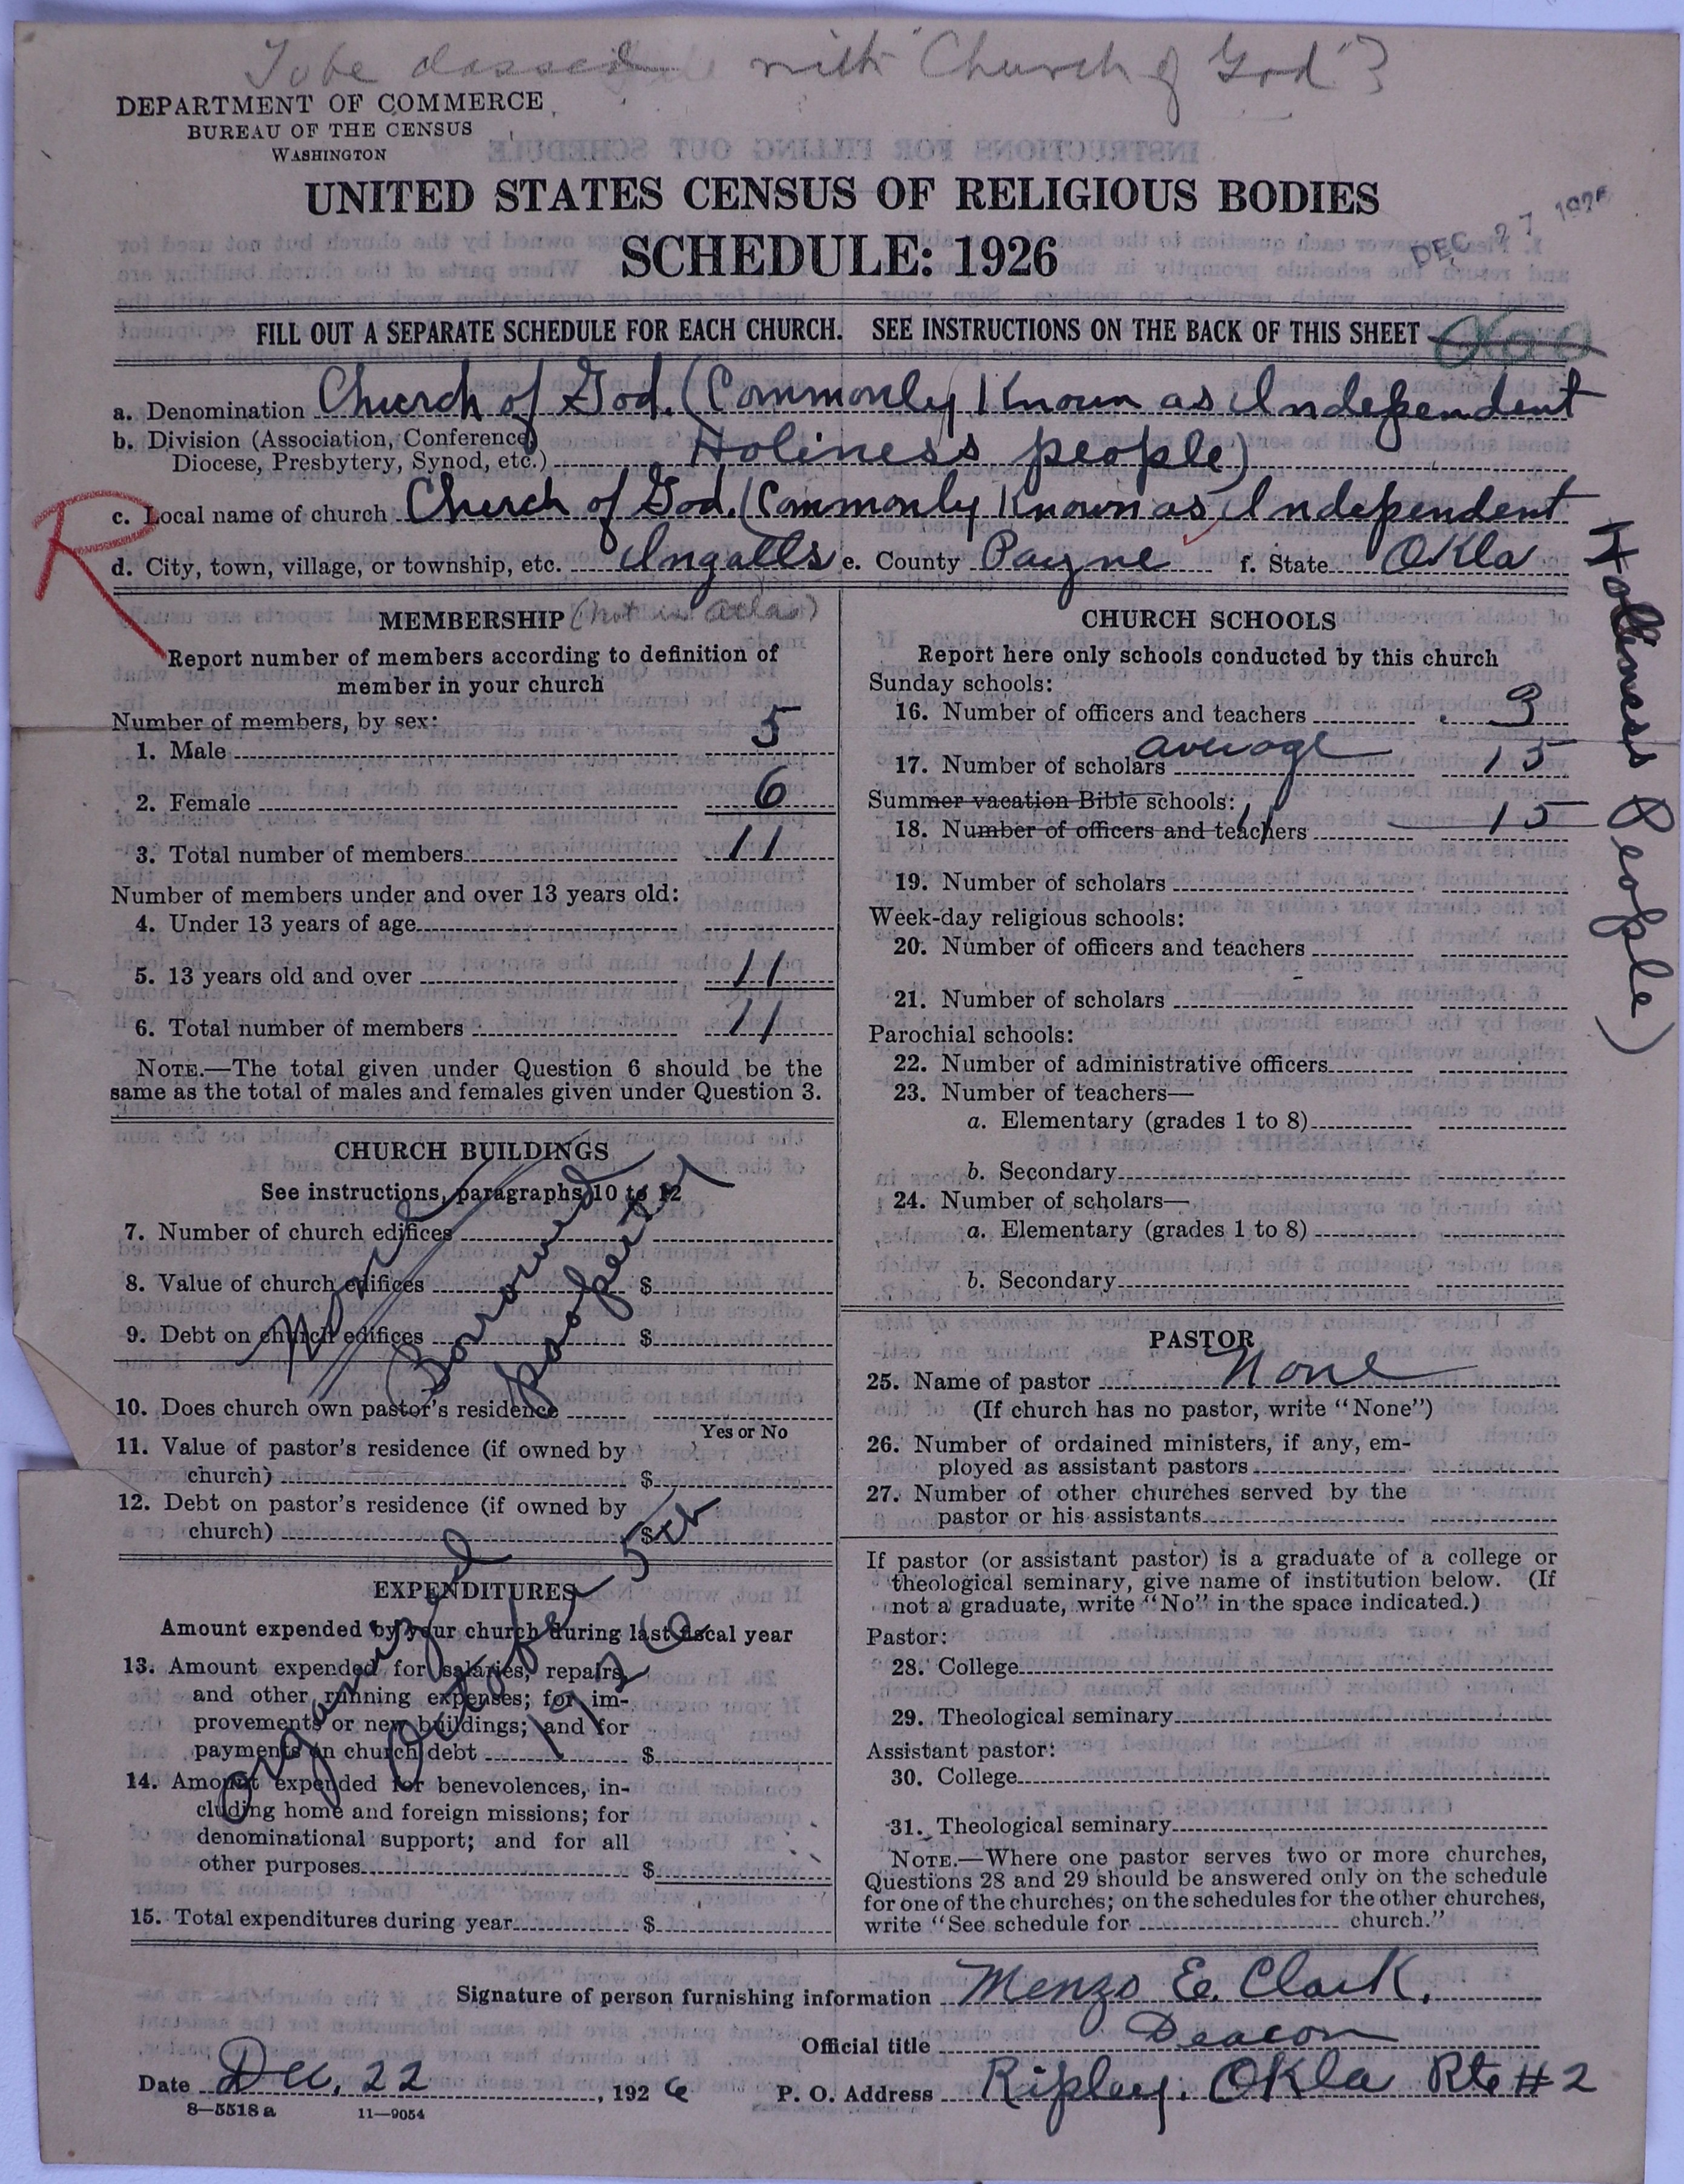 To be classed with "Church of God"?
DEPARTMENT OF COMMERCE
BUREAU OF THE CENSUS
WASHINGTON
UNITED STATES CENSUS OF RELIGIOUS BODIES
SCHEDULE: 1926
DEC 27 1926
FILL OUT A SEPARATE SCHEDULE FOR EACH CHURCH. SEE INSTRUCTIONS ON THE BACK OF THIS SHEET
a. Denomination Church of God. (Commonly Known as Independent
b. Division (Association, Conference, Diocese, Presbytery, Synod, etc.) Holiness people)
R
c. Local name of church Church of God. (Commonly Known as Independent
Holiness People)
d. City, town, village, or township, etc. Ingalls e. County Payne f. State Okla
MEMBERSHIP (not in atlas)
Report number of members according to definition of
member in your church
Number of members, by sex:
1. Male 5
2. Female 6
3. Total number of members 11
Number of members under and over 13 years old:
4. Under 13 years of age
5. 13 years old and over 11
6. Total number of members 11
NOTE.—The total given under Question 6 should be the
same as the total of males and females given under Question 3.
CHURCH BUILDINGS
See instructions, paragraphs 10 to 12
7. Number of church edifices
8. Value of church edifices $
9. Debt on church edifices $
None
Borowed
property
10. Does church own pastor's residence
Yes or No
11. Value of pastor's residence (if owned by
church) $
12. Debt on pastor's residence (if owned by
church) $
EXPENDITURES
Amount expended by your church during last fiscal year
13. Amount expended for salaries, repairs,
and other running expenses; for im-
provements or new buildings; and for
payments on church debt $
14. Amount expended for benevolences, in-
cluding home and foreign missions; for
denominational support; and for all
other purposes $
15. Total expenditures during year $
organized
October 5th
1926
CHURCH SCHOOLS
Report here only schools conducted by this church
Sunday schools:
16. Number of officers and teachers 3
17. Number of scholars average 15
Summer vacation Bible schools:
18. Number of officers and teachers 15
19. Number of scholars
Week-day religious schools:
20. Number of officers and teachers
21. Number of scholars
Parochial schools:
22. Number of administrative officers
23. Number of teachers—
a. Elementary (grades 1 to 8)
b. Secondary
24. Number of scholars—
a. Elementary (grades 1 to 8)
b. Secondary
PASTOR
25. Name of pastor None
(If church has no pastor, write "None")
26. Number of ordained ministers, if any, em-
ployed as assistant pastors
27. Number of other churches served by the
pastor or his assistants
If pastor (or assistant pastor) is a graduate of a college or
theological seminary, give name of institution below. (If
not a graduate, write "No" in the space indicated.)
Pastor:
28. College
29. Theological seminary
Assistant pastor:
30. College
31. Theological seminary
NOTE.—Where one pastor serves two or more churches,
Questions 28 and 29 should be answered only on the schedule
for one of the churches; on the schedules for the other churches,
write "See schedule for church."
Signature of person furnishing information Menzo E. Clark.
Official title Deacon
Date Dec. 22, 1926 P. O. Address Ripley. Okla Rte #2
8—5518a 11—9054